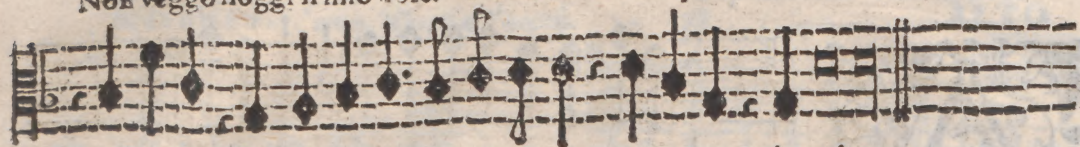 Non veggo hoggi il mio Sole.